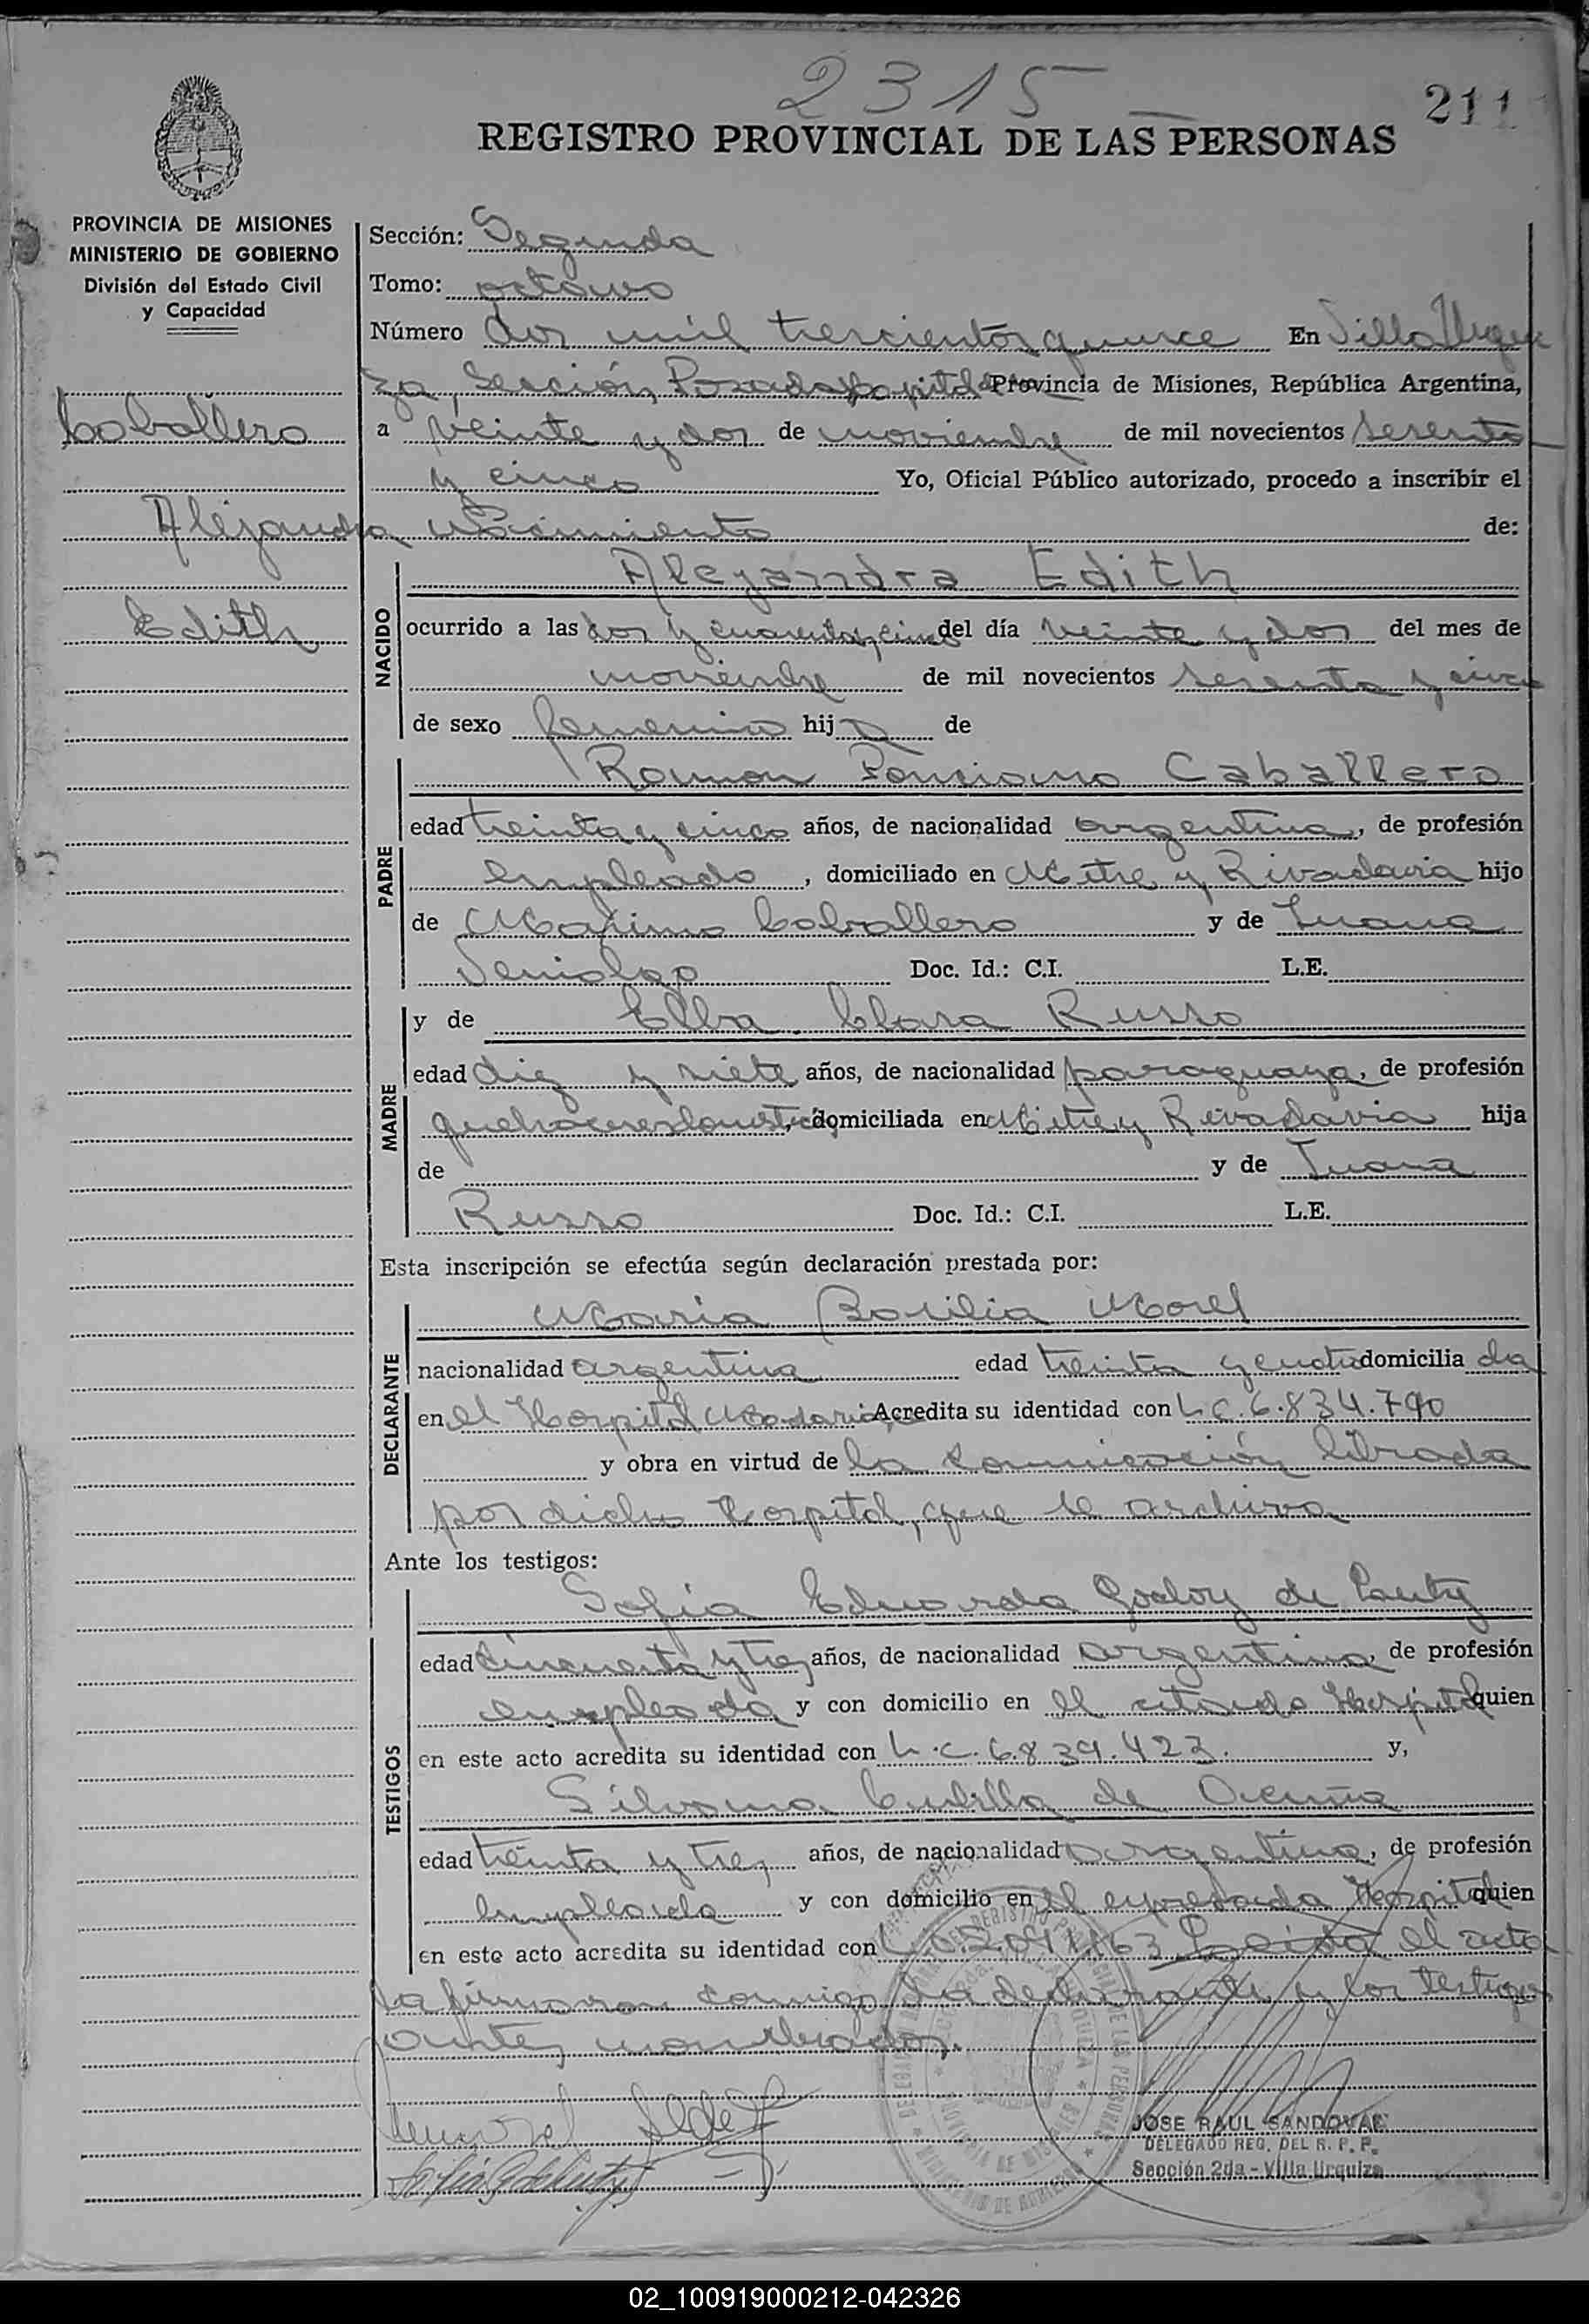 2315
211
REGISTRO PROVINCIAL DE LAS PERSONAS
PROVINCIA DE MISIONES
MINISTERIO DE GOBIERNO
División del Estado Civil
y Capacidad
Caballero
Alejandra
Edith
Sección: Segunda
Tomo: octavo
Número dos mil trescientos quince En Villa Urqui
za, Sección Posadas, Capital Provincia de Misiones, República Argentina,
a veinte y dos de noviembre de mil novecientos sesenta
y cinco Yo, Oficial Público autorizado, procedo a inscribir el
Nacimiento de:
NACIDO
Alejandra Edith
ocurrido a las dos y cuarenta y cinco del día veinte y dos del mes de
noviembre de mil novecientos sesenta y cinco
de sexo femenino hija de
PADRE
Ramon Ponciano Caballero
edad treinta y cinco años, de nacionalidad argentina, de profesión
empleado, domiciliado en Mitre y Rivadavia hijo
de Maximo Caballero y de Juana
Doc. Id.: C.I. L.E.
MADRE
y de Elba Clara Russo
edad diez y siete años, de nacionalidad paraguaya, de profesión
quehaceres domésticos, domiciliada en Mitre y Rivadavia hija
de y de Juana
Russo Doc. Id.: C.I. L.E.
Esta inscripción se efectúa según declaración prestada por:
DECLARANTE
Maria Basilia Morel
nacionalidad argentina edad treinta y cuatro domicilia da
en el Hospital Madariaga Acredita su identidad con L.C. 6.834.790
y obra en virtud de la comunicación librada
por dicho Hospital, que se archiva
Ante los testigos:
TESTIGOS
Sofia Eduarda Godoy de
edad cincuenta y tres años, de nacionalidad argentina, de profesión
empleada y con domicilio en el citado Hospital quien
en este acto acredita su identidad con L.C. 6.839.423. y,
Silvana Cubilla de Acuña
edad treinta y tres años, de nacionalidad argentina, de profesión
empleada y con domicilio en el expresado Hospital quien
en este acto acredita su identidad con Leída el acta
la firmaron conmigo la declarante y los testigos
antes nombrados.
JOSE RAUL SANDOVAL
DELEGADO REG. DEL R. P. P.
Sección 2da - Villa Urquiza
02_100919000212-042326